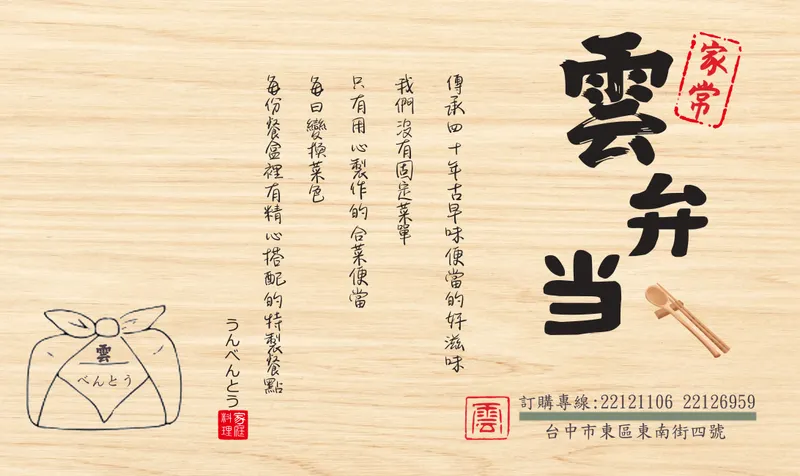 家常
雲弁当
傳承四十年古早味便當的好滋味
我們沒有固定菜單
只有用心製作的合菜便當
每日變換菜色
每份餐盒裡有精心搭配的特製餐點
うんべんとう
家庭料理
雲
べんとう
雲
訂購專線:22121106 22126959
台中市東區東南街四號